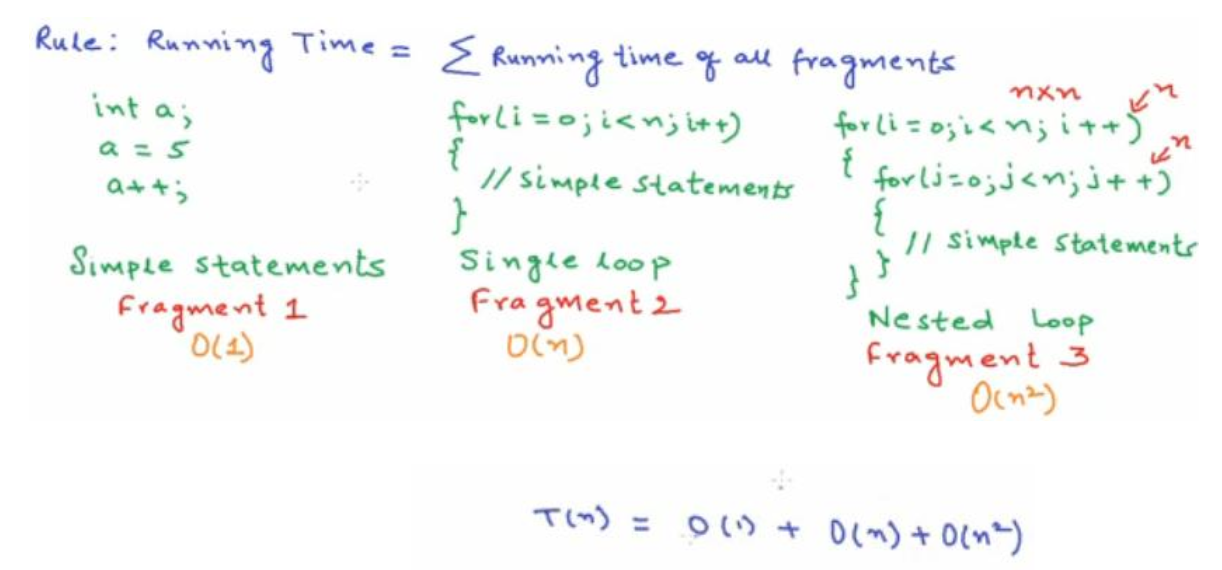 Rule: Running Time = ∑ Running time of all fragments
int a;
a = 5
a++;
Simple statements
Fragment 1
O(1)
for(i=0;i<n;i++)
{
// simple statements
}
Single loop
Fragment 2
O(n)
n×n
n
for(i=0;i<n;i++)
n
{ for(j=0;j<n;j++)
{
// Simple statements
}
}
Nested Loop
Fragment 3
O(n²)
T(n) = O(1) + O(n) + O(n²)